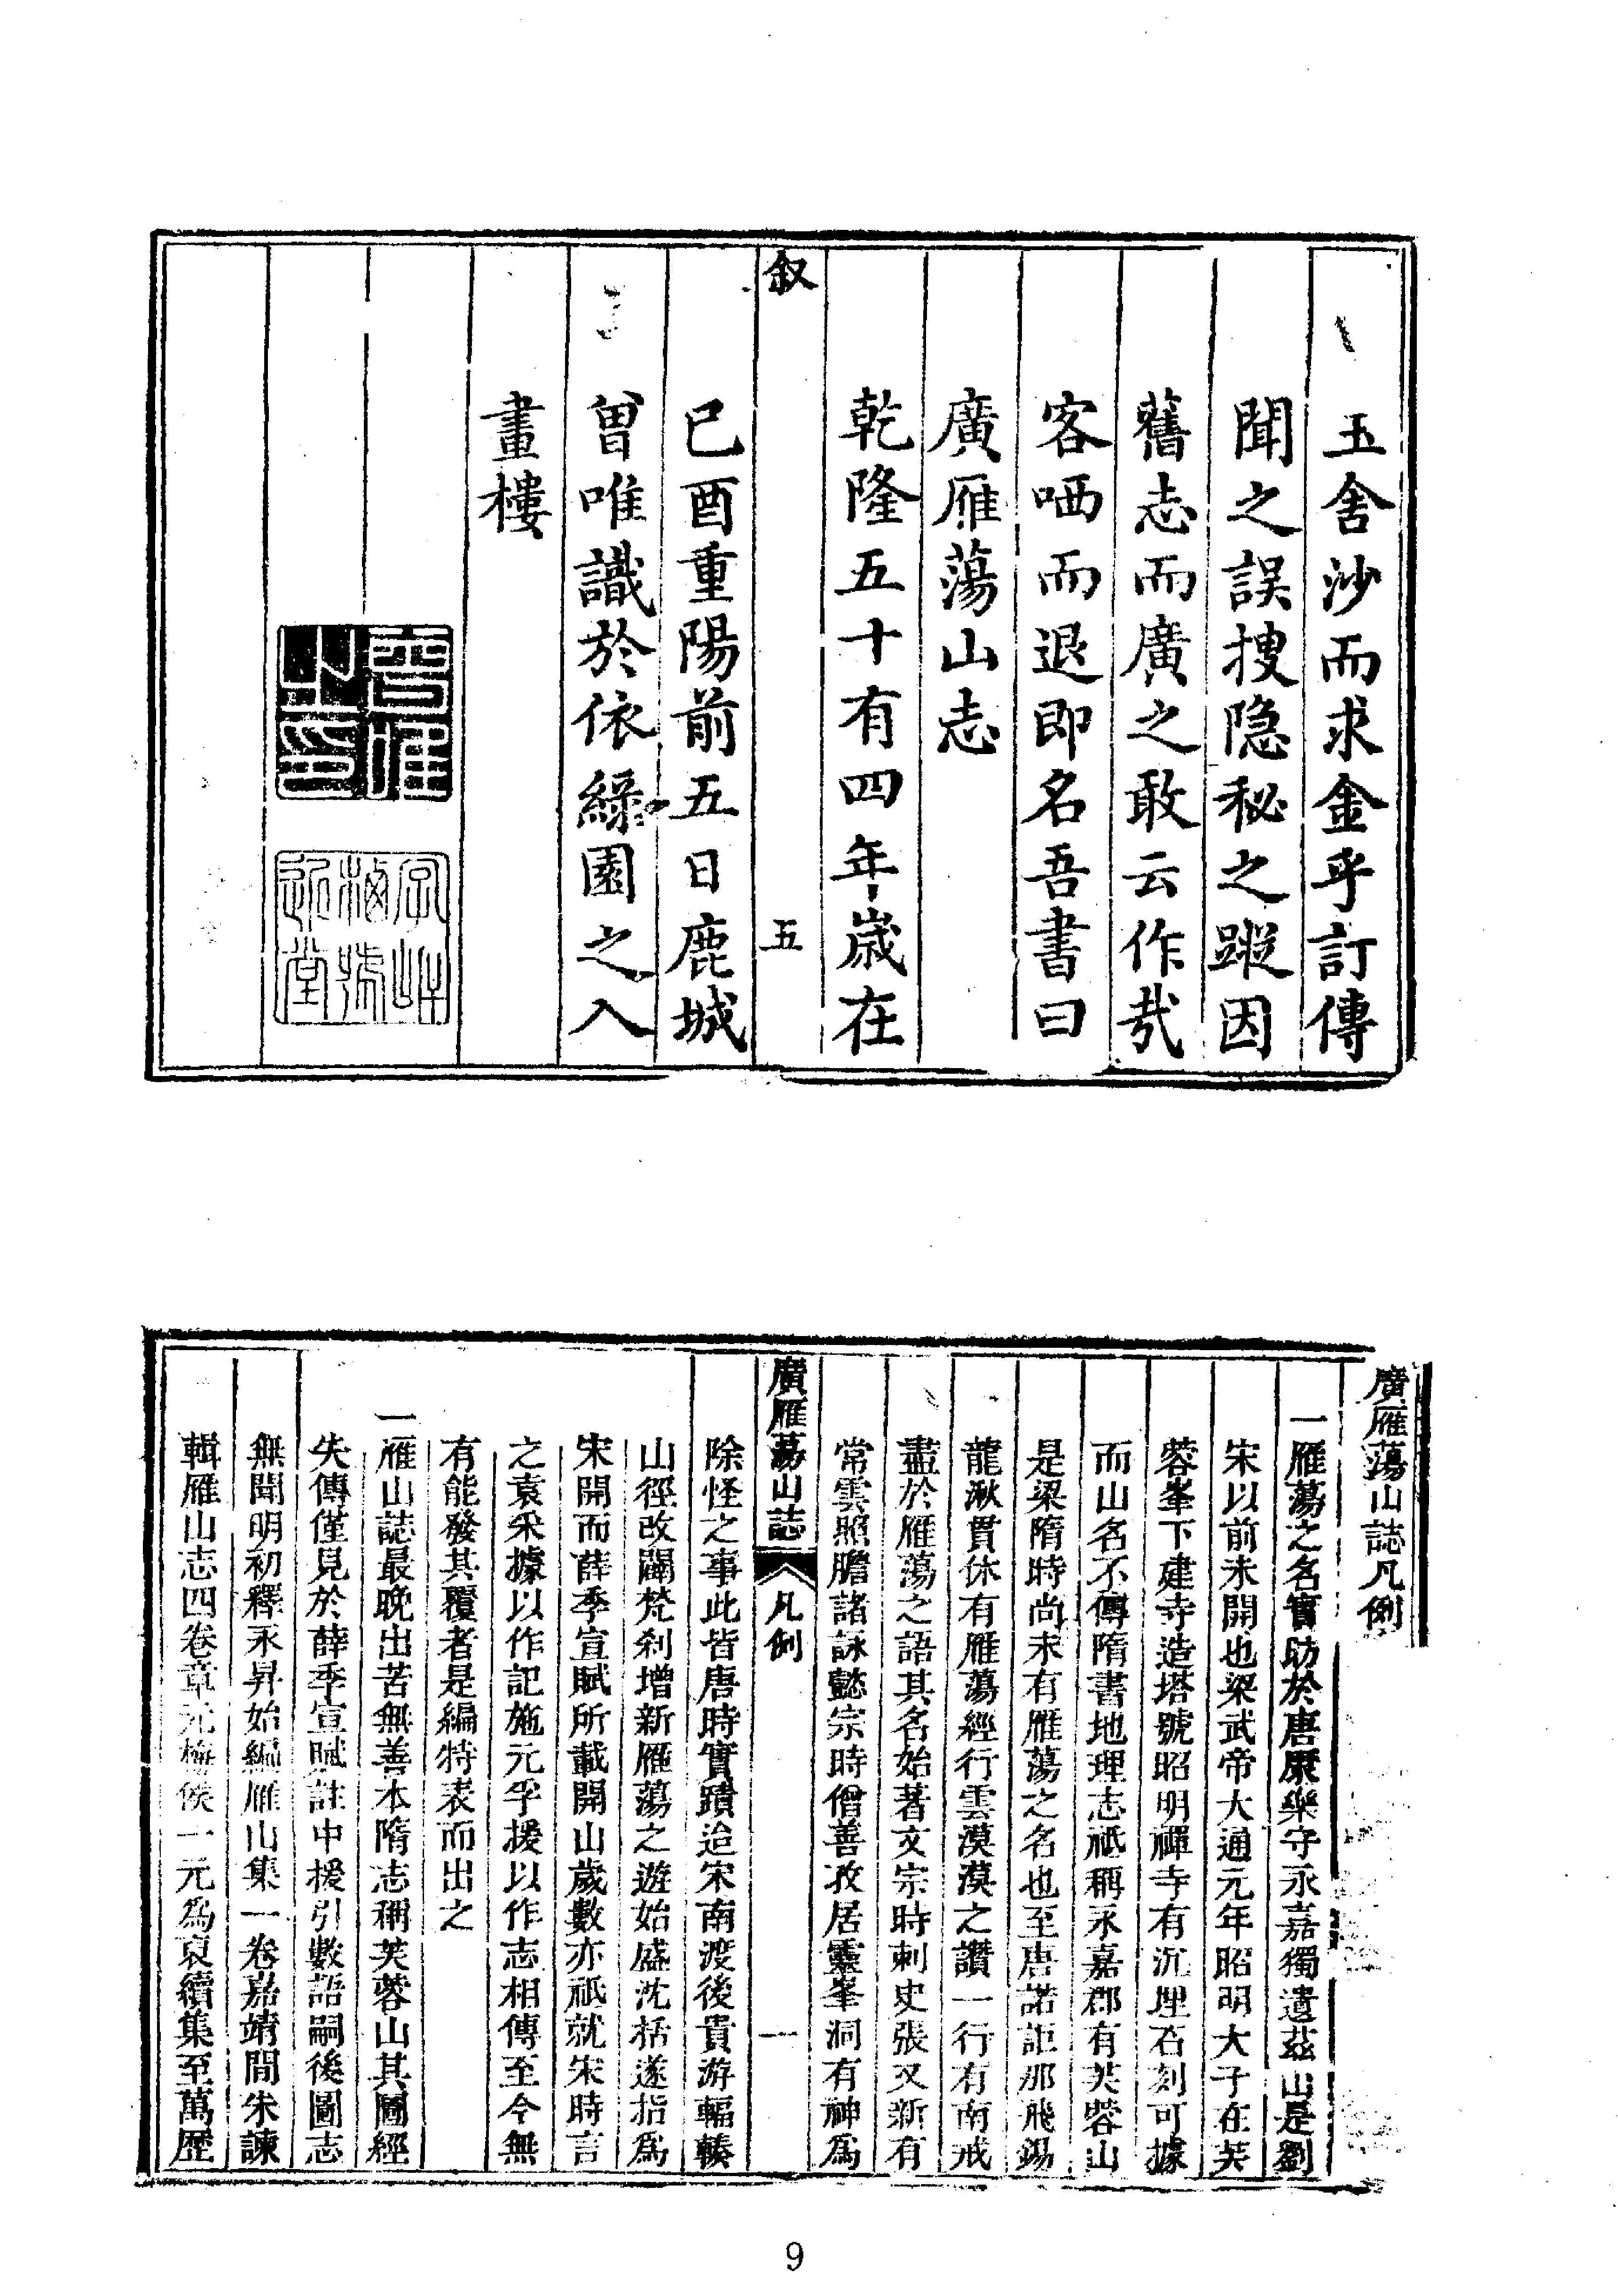 玉舍沙而求金乎訂傳
聞之誤搜隐秘之蹤因
舊志而廣之敢云作哉
客哂而退即名吾書曰
廣雁蕩山志
乾隆五十有四年歲在
叙
五
已酉重陽前五日鹿城
曽唯識於依緑園之入
畫樓
曾唯之印
字岸棲號近堂
廣雁蕩山誌凡例
一雁蕩之名實昉於唐康樂守永嘉獨遺茲山是劉
宋以前未開也梁武帝大通元年昭明太子在芙
蓉峯下建寺造塔號昭明禪寺有沉埋石刻可據
而山名不傳隋書地理志祇稱永嘉郡有芙蓉山
是梁隋時尚未有雁蕩之名也至唐諾詎那飛錫
龍湫貫休有雁蕩經行雲漠漠之讚一行有南戒
盡於雁蕩之語其名始著文宗時刺史張又新有
常雲照膽諸詠懿宗時僧善孜居靈峯洞有神爲
廣雁蕩山誌
凡例
一
除怪之事此皆唐時實蹟迨宋南渡後貴游輻輳
山徑改闢梵刹增新雁蕩之遊始盛沈括遂指爲
宋開而薛季宣賦所載開山歲數亦祇就宋時言
之袁采據以作記施元孚援以作志相傳至今無
有能發其覆者是編特表而出之
一雁山誌最晚出苦無善本隋志稱芙蓉山其圖經
失傳僅見於薛季宣賦註中援引數語嗣後圖志
無聞明初釋永昇始編雁山集一卷嘉靖間朱諫
輯雁山志四卷章元梅侯一元爲裒續集至萬歷
9